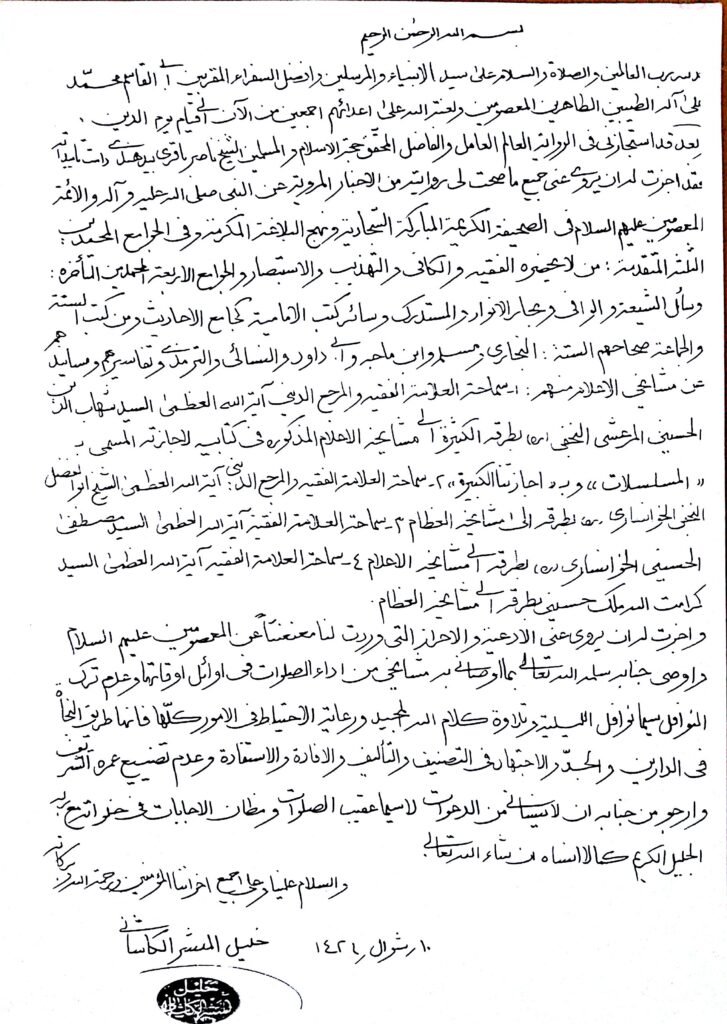 بسم الله الرحمن الرحیم
لله رب العالمین والصلاة والسلام علی سید الانبیاء والمرسلین وافضل السفراء المقربین ابی القاسم محمّد
علی آله الطیبین الطاهرین المعصومین ولعنة الله علی اعدائهم اجمعین من الآن الی قیام یوم الدین .
بعد قد استجازنی فی الروایة العالم العامل والفاضل المحقق حجة الاسلام والمسلمین الشیخ ناصر باقری بیدهندی دامت تأییداته
فقد اجزت له ان یروی عنی جمیع ما صحت لی روایته من الاخبار المرویة عن النبی صلی الله علیه وآله والائمة
المعصومین علیهم السلام فی الصحیفة الکریمة المبارکة السّجادیة ونهج البلاغة المکرمة وفی الجوامع المحمدین
الثلثة المتقدمة : من لا یحضره الفقیه والکافی والتهذیب والاستبصار والجوامع الاربعة للمحمدین المتأخرة :
وسائل الشیعة والوافی وبحار الانوار والمستدرک وسائر کتب الامامیة کجامع الاحادیث ومن کتب السنة
والجماعة صحاحهم الستة : البخاری ومسلم وابن ماجه وابی داود والنسائی والترمذی وتفاسیرهم ومسانیدهم
عن مشایخی الاعلام منهم : ۱ـ سماحة العلامة الفقیه والمرجع الدینی آیة الله العظمی السید شهاب الدین
الحسینی المرعشی النجفی (ره) بطرقه الکثیرة الی مشایخه الاعلام المذکورة فی کتابیه لاجازته المسمی بـ
«المسلسلات» و بـ « اجازتنا الکبیرة » ۲ـ سماحة العلامة الفقیه والمرجع الدینی آیة الله العظمی الشیخ ابوالفضل
النجفی الخوانساری (ره) بطرقه الی مشایخه العظام ۳ـ سماحة العلامة الفقیه آیة الله العظمی السید مصطفی
الحسینی الخوانساری (ره) بطرقه الی مشایخه الاعلام ٤ـ سماحة العلامة الفقیه آیة الله العظمی السید
کرامت الله ملک حسینی بطرقه الی مشایخه العظام .
واجزت له ان یروی عنی الادعیة والاحراز التی وردت لنا معنعنًا عن المعصومین علیهم السلام
واوصی جنابه سلمه الله تعالی بما اوصانی به مشایخی من اداء الصلوات فی اوائل اوقاتها وعدم ترک
النوافل سیما نوافل اللیلیة وتلاوة کلام الله المجید ورعایة الاحتیاط فی الامور کلّها فانها طریق النجاة
فی الدارین والجدّ والاجتهاد فی التصنیف والتألیف والافادة والاستفادة وعدم تضییع عمره الشریف
وارجو من جنابه ان لا ینسانی من الدعوات لا سیما عقیب الصلوات ومظان الاجابات فی خلواته مع ربه
الجلیل الکریم کما لا انساه ان شاء الله تعالی
والسلام علینا وعلی جمیع اخواننا المؤمنین ورحمة الله وبرکاته
۱۰ / شوال / ۱٤۲٦ خلیل المبشر الکاشانی
خلیل
مبشر الکاشانی